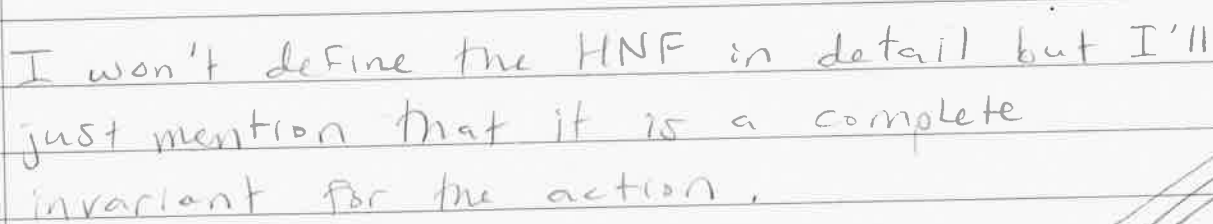 I won't define the HNF in detail but I'll
just mention that it is a complete
invariant for the action.